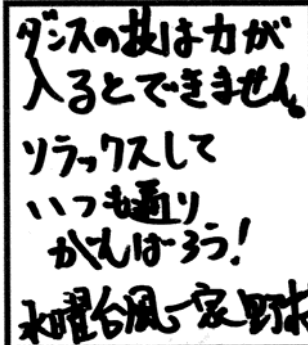 ダンスの技は力が
入るとできません。
リラックスして
いつも通り
がんばろう!
水曜台風一家 野村